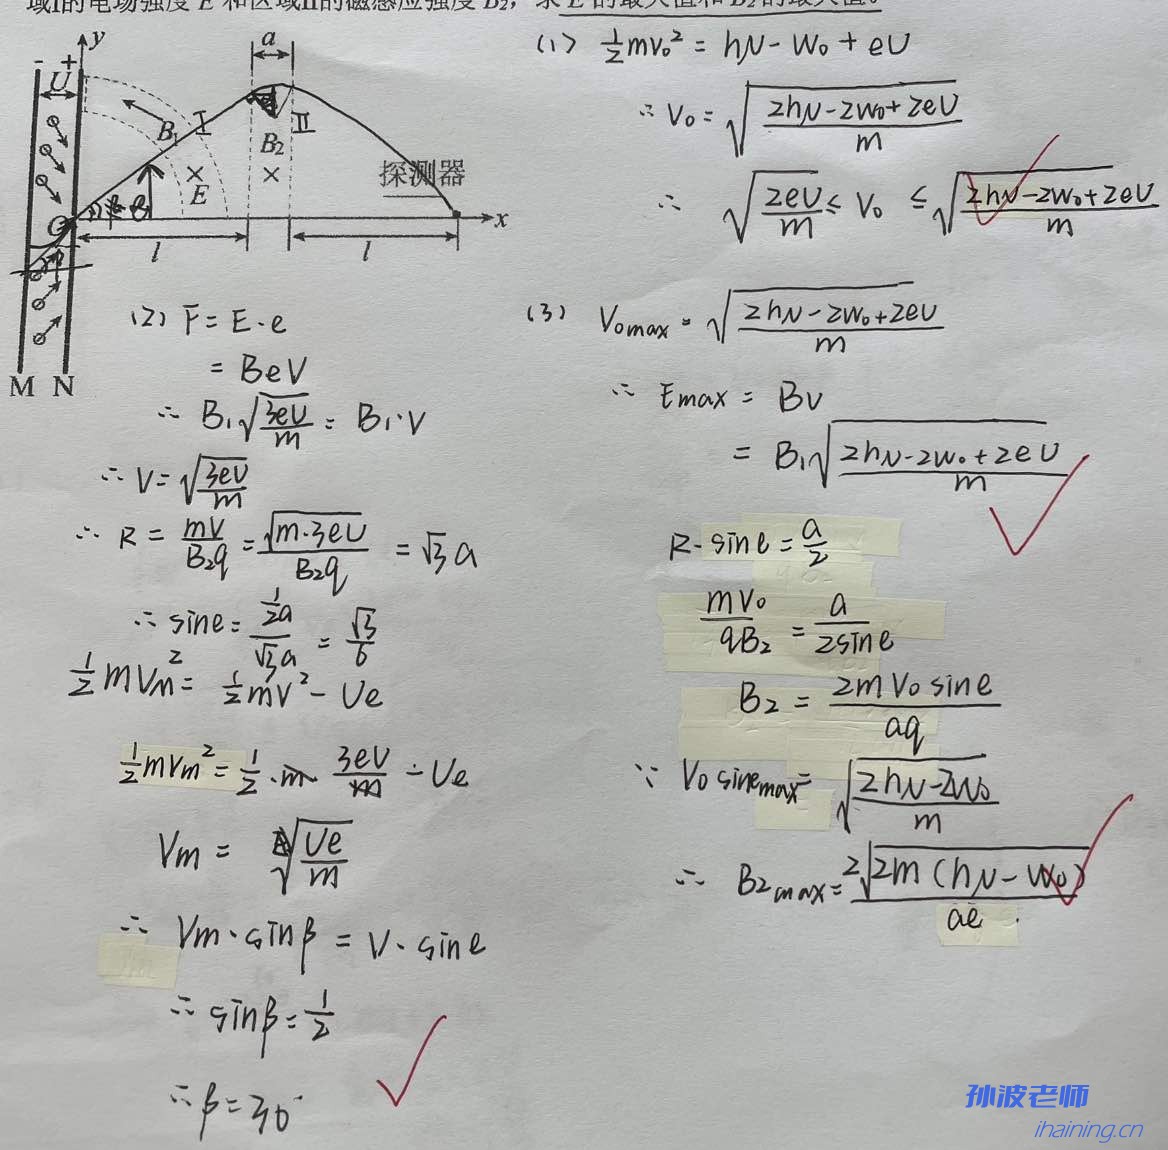 域Ⅰ的电场强度 E 和区域Ⅱ的磁感应强度 B₂，求 E 的最大值和 B₂ 的最大值。
y
a
- +
U
B₁
I
B₂
II
E
探测器
O
x
l
l
M N
(1) ½mv₀² = hν - W₀ + eU
∴ V₀ = √((2hν-2W₀+2eU)/m)
∴ √(2eU/m) ≤ V₀ ≤ √((2hν-2W₀+2eU)/m)
(2) F = E·e
= BeV
∴ B₁√(3eU/m) = B₁·V
∴ V = √(3eU/m)
∴ R = mV/(B₂q) = √(m·3eU)/(B₂q) = √3 a
∴ sinθ = (½a)/(√3a) = √3/6
½mVm² = ½mV² - Ue
½mVm² = ½·m·3eU/m - Ue
Vm = √(Ue/m)
∴ Vm·sinβ = V·sinθ
∴ sinβ = 1/2
∴ β = 30°
(3) V₀max = √((2hν-2W₀+2eU)/m)
∴ Emax = BV
= B₁√((2hν-2W₀+2eU)/m)
R·sinθ = a/2
mV₀/(qB₂) = a/(2sinθ)
B₂ = 2mV₀sinθ/(aq)
∵ V₀sinθmax = √((2hν-2W₀)/m)
∴ B₂max = 2√(2m(hν-W₀))/(ae)
孙波老师
ihaining.cn